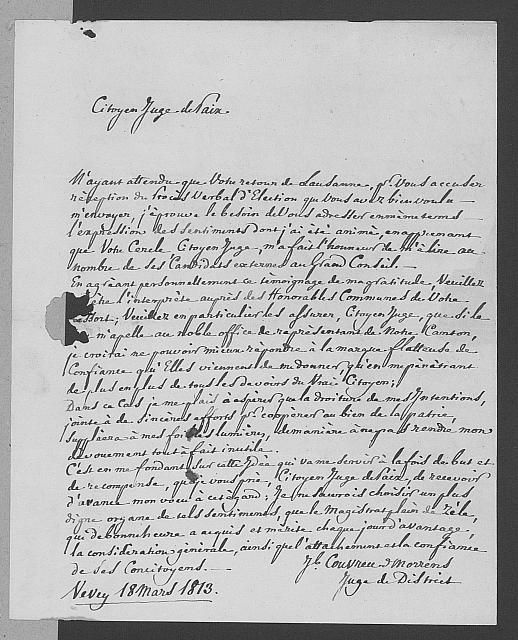 Citoyen Juge de Paix.
N'ayant attendu que Votre retour de Lausanne, pr. Vous accuser
réception du Procès Verbal d'Election que Vous avez bien voulu
m'envoyer, j'éprouve le besoin de Vous adresser en même tems
l'expression des sentimens dont j'ai été animé, en apprenant
que Votre Cercle Citoyen Juge, m'a fait l'honneur de m'élire au
nombre de ses Candidats externes au Grand Conseil.
En agréant personnellement ce témoignage de ma gratitude, Veuillez
être l'interprète auprès des Honorables Communes de Votre
ressort; Veuillez en particulier les assurer, Citoyen Juge, que si le
m'apelle au noble office de représentant de Notre Canton,
je croirai ne pouvoir mieux répondre à la marque flatteuse de
Confiance qu'Elles viennent de me donner, qu'en me pénétrant
de plus en plus de tous les devoirs du Vrai Citoyen;
Dans ce Cas je me plais à espérer que la droiture de mes Intentions,
jointe à de sincères efforts pr. coopérer au bien de la patrie,
suppléera à mes foibles lumières, de manière à ne pas rendre mon
dévouement tout à fait inutile.
C'est en me fondant sur cette Idée qui va me servir à la fois de but et
de récompense, que je vous prie, Citoyen Juge de Paix, de recevoir
d'avance mon voeu à cet égard: Je ne saurais choisir un plus
digne organe de tels sentimens, que le Magistrat plein de Zèle,
qui de bonne heure a acquis et mérite chaque jour d'avantage,
la considération générale, ainsi que l'attachement et la confiance
de ses Concitoyens.
Couvreu
Juge de District
Vevey 18 Mars 1813.